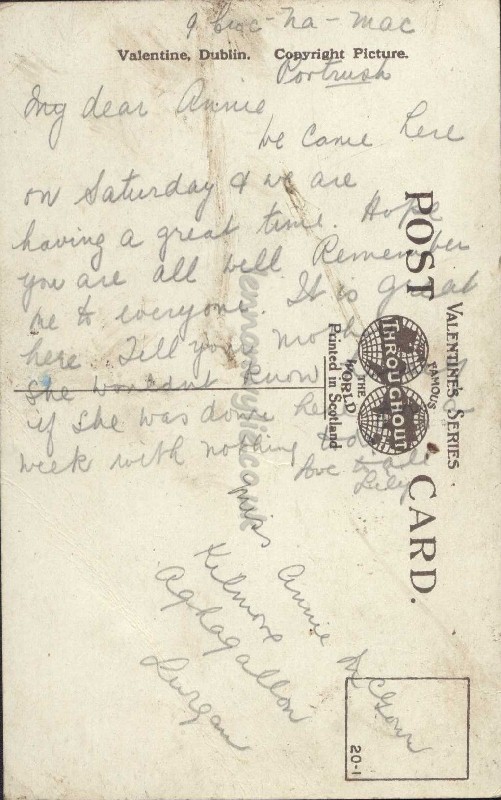 9 Croc-na-mac
Valentine, Dublin. Copyright Picture.
Portrush
My dear Annie
We came here
on Saturday & we are
having a great time. Hope
you are all well Remember
me to everyone. It is great
here Tell your
she wouldn't know
if she was down
week with nothing to do
love to all
Lily
Miss Annie
Kilmore
Aghagallon
Lurgan
POST CARD.
VALENTINE'S SERIES
FAMOUS
THROUGHOUT
THE
WORLD
Printed in Scotland
20-1